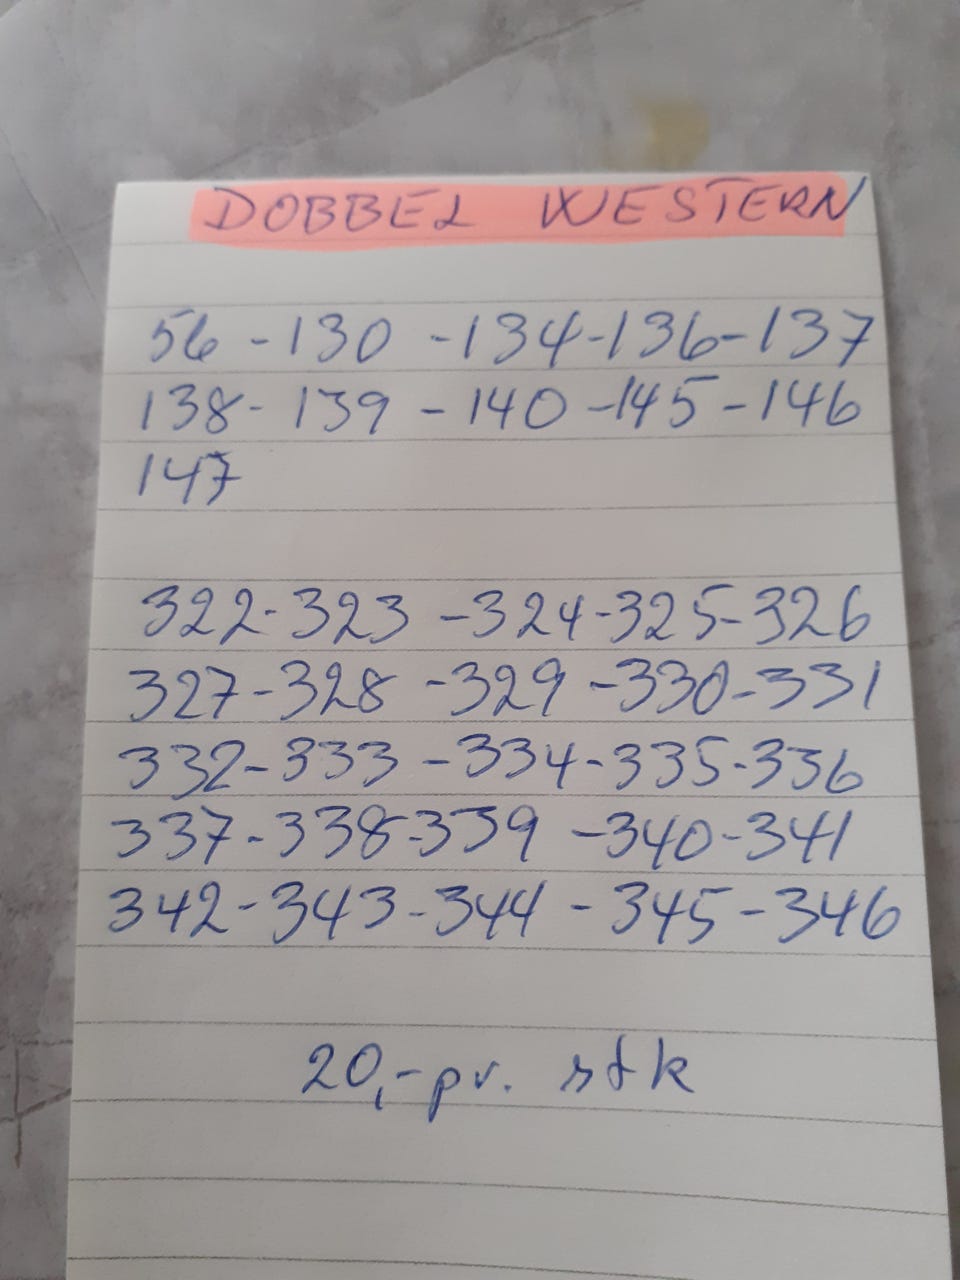 DOBBEL WESTERN
56 - 130 - 134 - 136 - 137
138 - 139 - 140 - 145 - 146
147
322 - 323 - 324 - 325 - 326
327 - 328 - 329 - 330 - 331
332 - 333 - 334 - 335 - 336
337 - 338 - 339 - 340 - 341
342 - 343 - 344 - 345 - 346
20,- pr. stk